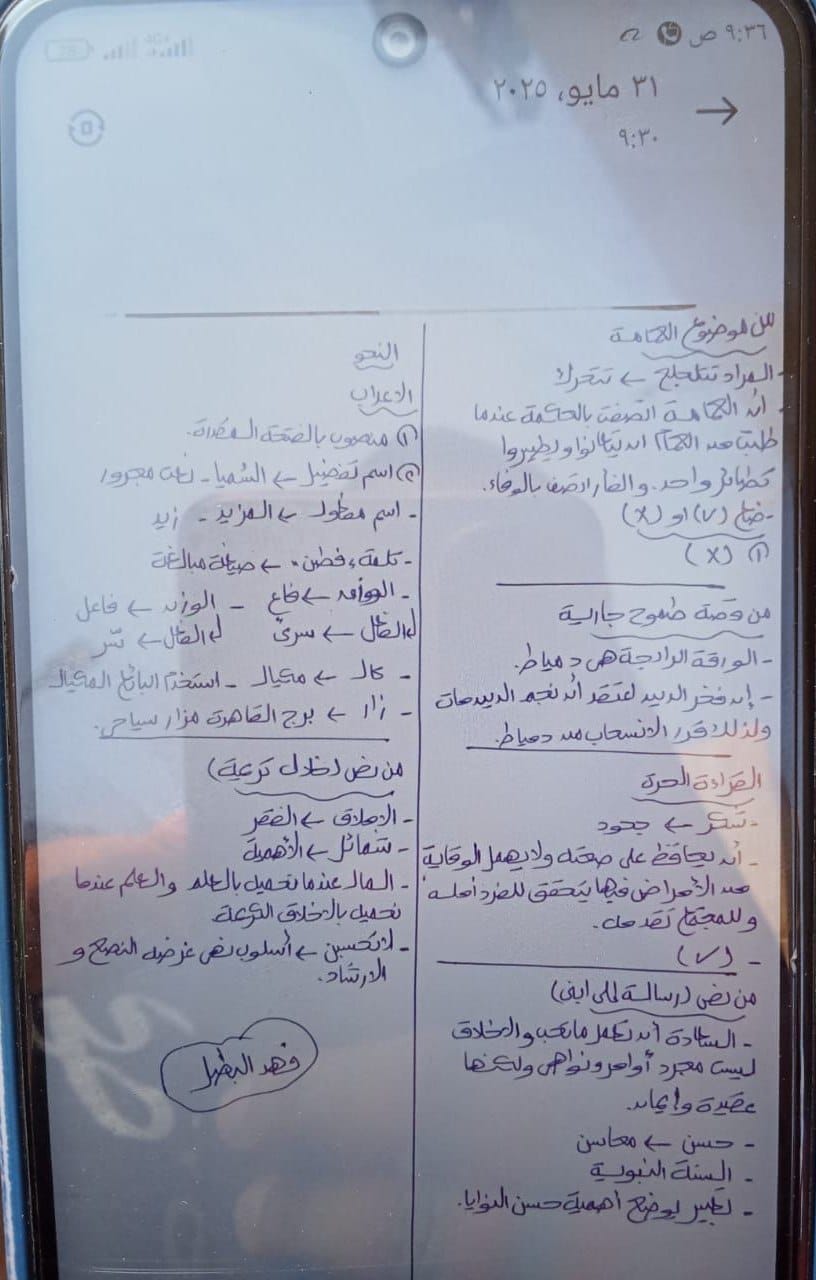 ٩:٣٦ ص
٣١ مايو، ٢٠٢٥
٩:٣٠
من موضوع الحمامة
- المراد تتلجلج ← تتحرك
- أن الحمامة اتصفت بالحكمة عندما
طلبت من الحمام أن يتعاونوا ويطيروا
كطائر واحد. والفار اتصف بالوفاء.
- ضع (√) أو (X)
(١) (X)
من قصة طموح جارية
- الورقة الرابحة هي دمياط.
- إن فخر الدين اعتقد أن نجم الدين مات
ولذلك قرر الانسحاب من دمياط.
القراءة الحرة
- تنكر ← جحود
- أن يحافظ على صحته ولا يهمل الوقاية
من الأمراض فبها يتحقق للفرد أمله
وللمجتمع تقدمه.
- (√)
من نص (رسالة إلى ابنى)
- السعادة أن تعمل ما تحب والاخلاق
ليست مجرد أوامر ونواهى ولكنها
عقيدة وإيمان.
- حسن ← محاسن
- السنة النبوية
- تعبير يوضح أهمية حسن النوايا.
النحو
الاعراب
(١) منصوب بالفتحة المقدرة.
(٢) اسم تفضيل ← العليا - نعت مجرور
- اسم مفعول ← المزيد - زيد
- كلمة "فطن" ← صيغة مبالغة
- الوزن ← فاع - الوزن ← فاعل
الفعل ← سرى الفعل ← سر
- كال ← مكيال - استخدم البائع المكيال
- زار ← برج القاهرة مزار سياحى.
من نص (خلال كريمة)
- الاملاق ← الفقر
- شمائل ← الأهمية
- المال عندما نحميل بالعلم والعلم عندما
نحميل بالاخلاق الكريمة.
- لا تحسبن ← أسلوب نهى غرضه النصح و
الارشاد.
فهد البطل